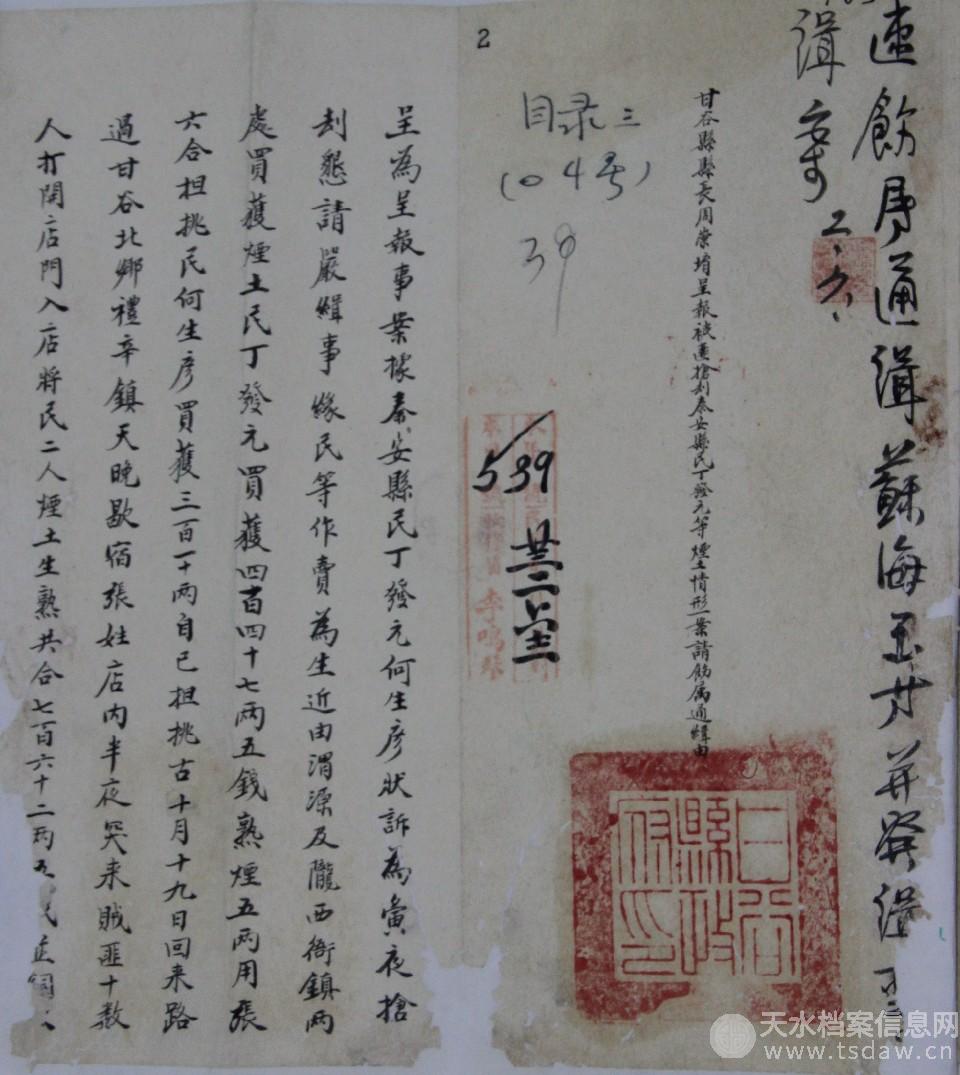 速飭屬通緝蘇海玉廿
緝
甘谷縣縣長周崇堉呈報被匪搶刦秦安縣民丁發元等煙土情形一案請飭属通緝由
甘谷縣政府印
2
目录三
(04号)
39
539
李鳴
呈為呈報事業據秦安縣民丁發元何生彥狀訴為夤夜搶
刦懇請嚴緝事緣民等作賣為生近由渭源及隴西衙鎮两
處買獲煙土民丁發元買獲四百四十七两五錢熟煙五两用張
六合担挑民何生彥買獲三百一十两自己担挑古十月十九日回来路
過甘谷北鄉禮辛鎮天晚歇宿張姓店内半夜突来賊匪十数
人打開店門入店將民二人煙土生熟共合七百六十二两五
天水档案信息网
www.tsdaw.cn